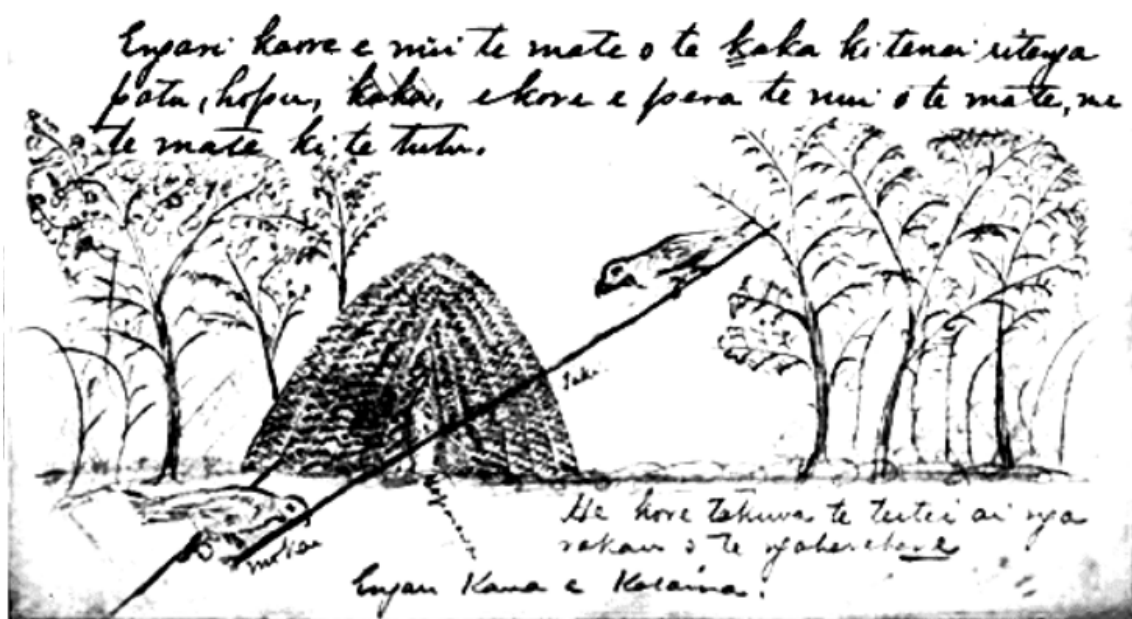 Engari kaore e nui te mate o te kaka ki tenei ritenga
patu, hopu, kaka, ekore e pera te nui o te mate, me
te mate ki te tutu.
mokai
He kore te tutei ai nga
rakau o te ngaherehere
Engari Kaua e